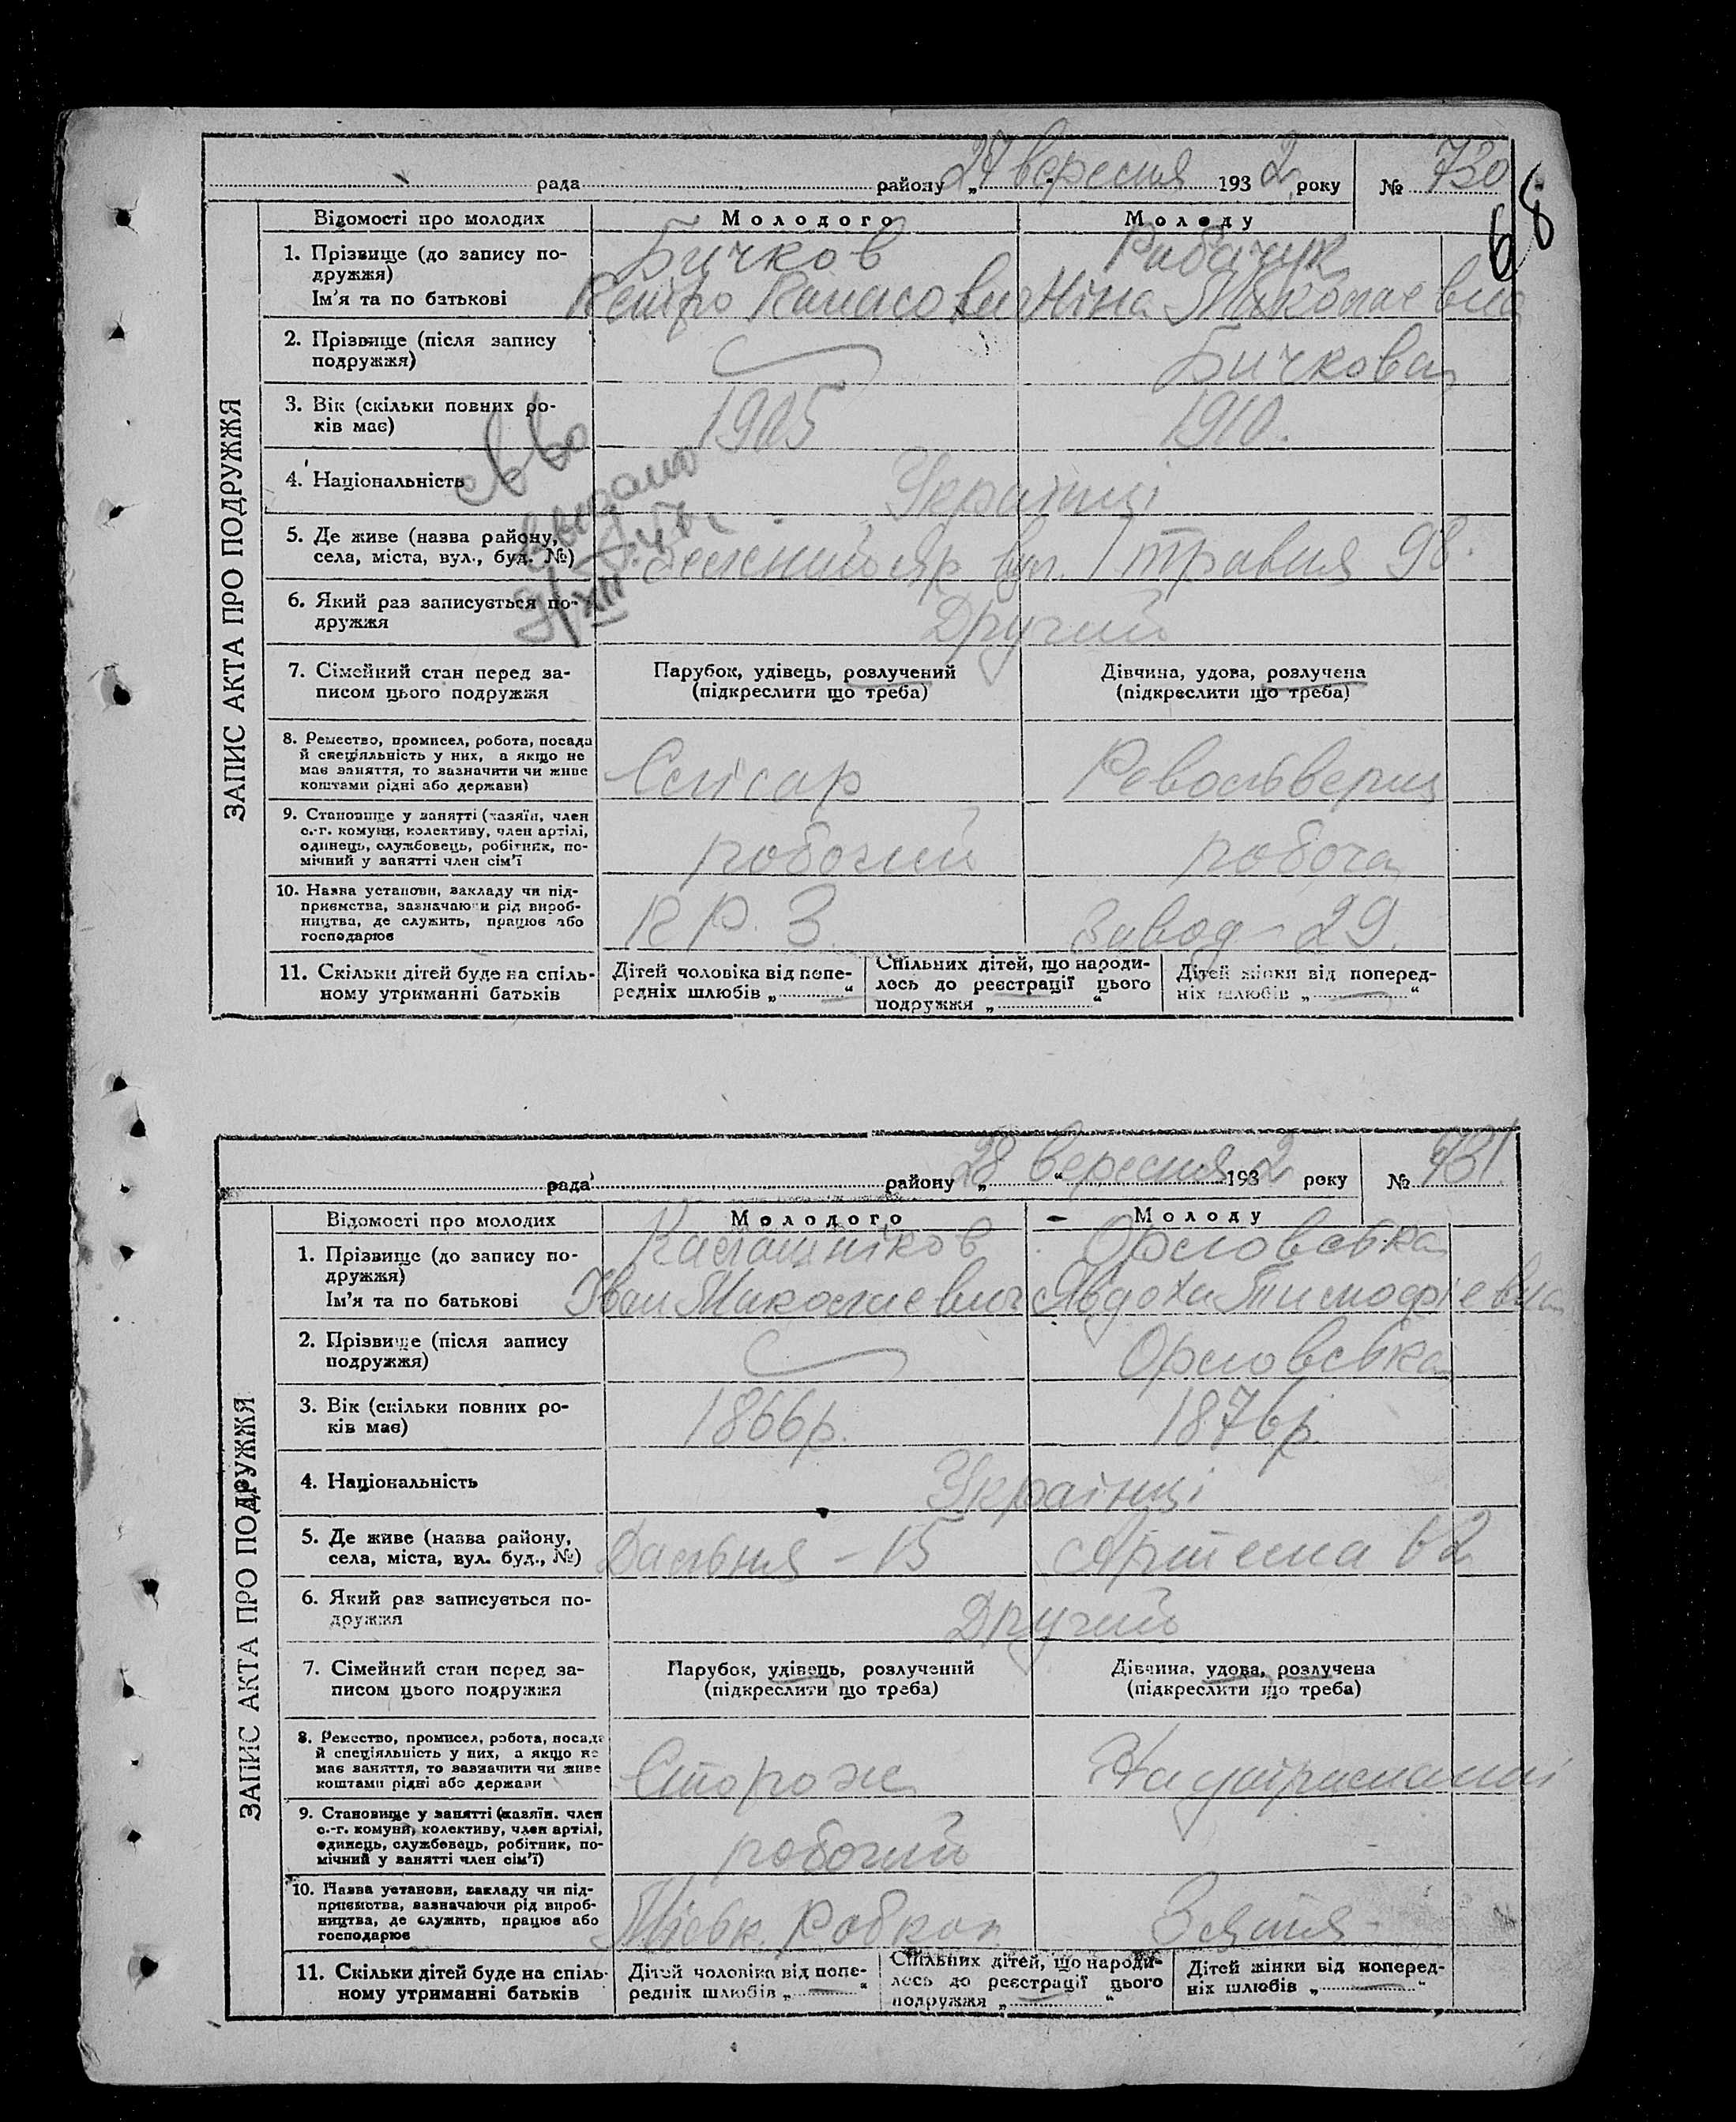 рада районму „27“ вересня 1932 року № 730
68
ЗАПИС АКТА ПРО ПОДРУЖЖЯ
Відомості про молодих Молодого Молоду
1. Прізвище (до запису по-
дружжя)
Бичков
Ім'я та по батькові
Ніна Миколаевна
2. Прізвище (після запису
подружжя)
Бичкова
3. Вік (скільки повних ро-
ків має)
1905 1910.
4. Національність
Українці
5. Де живе (назва району,
села, міста, вул., буд. №)
яр вул. 1 травня 98.
6. Який раз записується по-
дружжя
Другий
7. Сімейний стан перед за-
писом цього подружжя
Парубок, удівець, розлучений
(підкреслити що треба)
Дівчина, удова, розлучена
(підкреслити що треба)
8. Ремество, промисел, робота, посада
й спеціяльність у них, а якщо не
має заняття, то зазначити чи живе
коштами рідні або держави)
Слісар
9. Становище у занятті (хазяїн, член
с.-г. комуни, колективу, член артілі,
одинець, службовець, робітник, по-
мічний у занятті член сім'ї
робочий робоча
10. Назва установи, закладу чи під-
приємства, зазначаючи рід вироб-
ництва, де служить, працює або
господарює
К Р. З. Завод - 29.
11. Скільки дітей буде на спіль-
ному утриманні батьків
Дітей чоловіка від попе-
редніх шлюбів „ “
Спільних дітей, що народи-
лось до реєстрації цього
подружжя „ “
Дітей жінки від поперед-
ніх шлюбів „ “
рада району „28“ вересня 1932 року № 731
ЗАПИС АКТА ПРО ПОДРУЖЖЯ
Відомості про молодих Молодого Молоду
1. Прізвище (до запису по-
дружжя)
Калашніков Орловська
Ім'я та по батькові
Іван Миколаевич Явдоха Тимофіевна
2. Прізвище (після запису
подружжя)
Орловська
3. Вік (скільки повних ро-
ків має)
1866р. 1876р.
4. Національність
Українці
5. Де живе (назва району,
села, міста, вул. буд., №)
Дальня - 15 Артема 62
6. Який раз записується по-
дружжя
Другий
7. Сімейний стан перед за-
писом цього подружжя
Парубок, удівець, розлучений
(підкреслити що треба)
Дівчина, удова, розлучена
(підкреслити що треба)
8. Ремество, промисел, робота, посада
й спеціяльність у них, а якщо не
має заняття, то зазначити чи живе
коштами рідні або держави
Сторож На утриманні
9. Становище у занятті (хазяїн. член
с.-г. комуни, колективу, член артілі,
одинець, службовець, робітник, по-
мічний у занятті член сім'ї)
робочий
10. Назва установи, закладу чи під-
приємства, зазначаючи рід вироб-
ництва, де служить, працює або
господарює
Міськ. Робкоп Зятя-
11. Скільки дітей буде на спіль-
ному утриманні батьків
Дітей чоловіка від попе-
редніх шлюбів „ “
Спільних дітей, що народи-
лось до реєстрації цього
подружжя „ “
Дітей жінки від поперед-
ніх шлюбів „ “